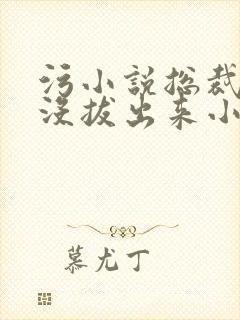 污小说总裁
没拔出来小
慕尤丁